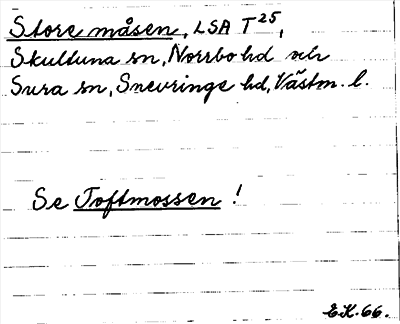 Store måsen, LSA T25,
Skultuna sn, Norrbo hd och
Sura sn, Snevringe hd, Västm. l.
Se Toftmossen !
E.K. 66.